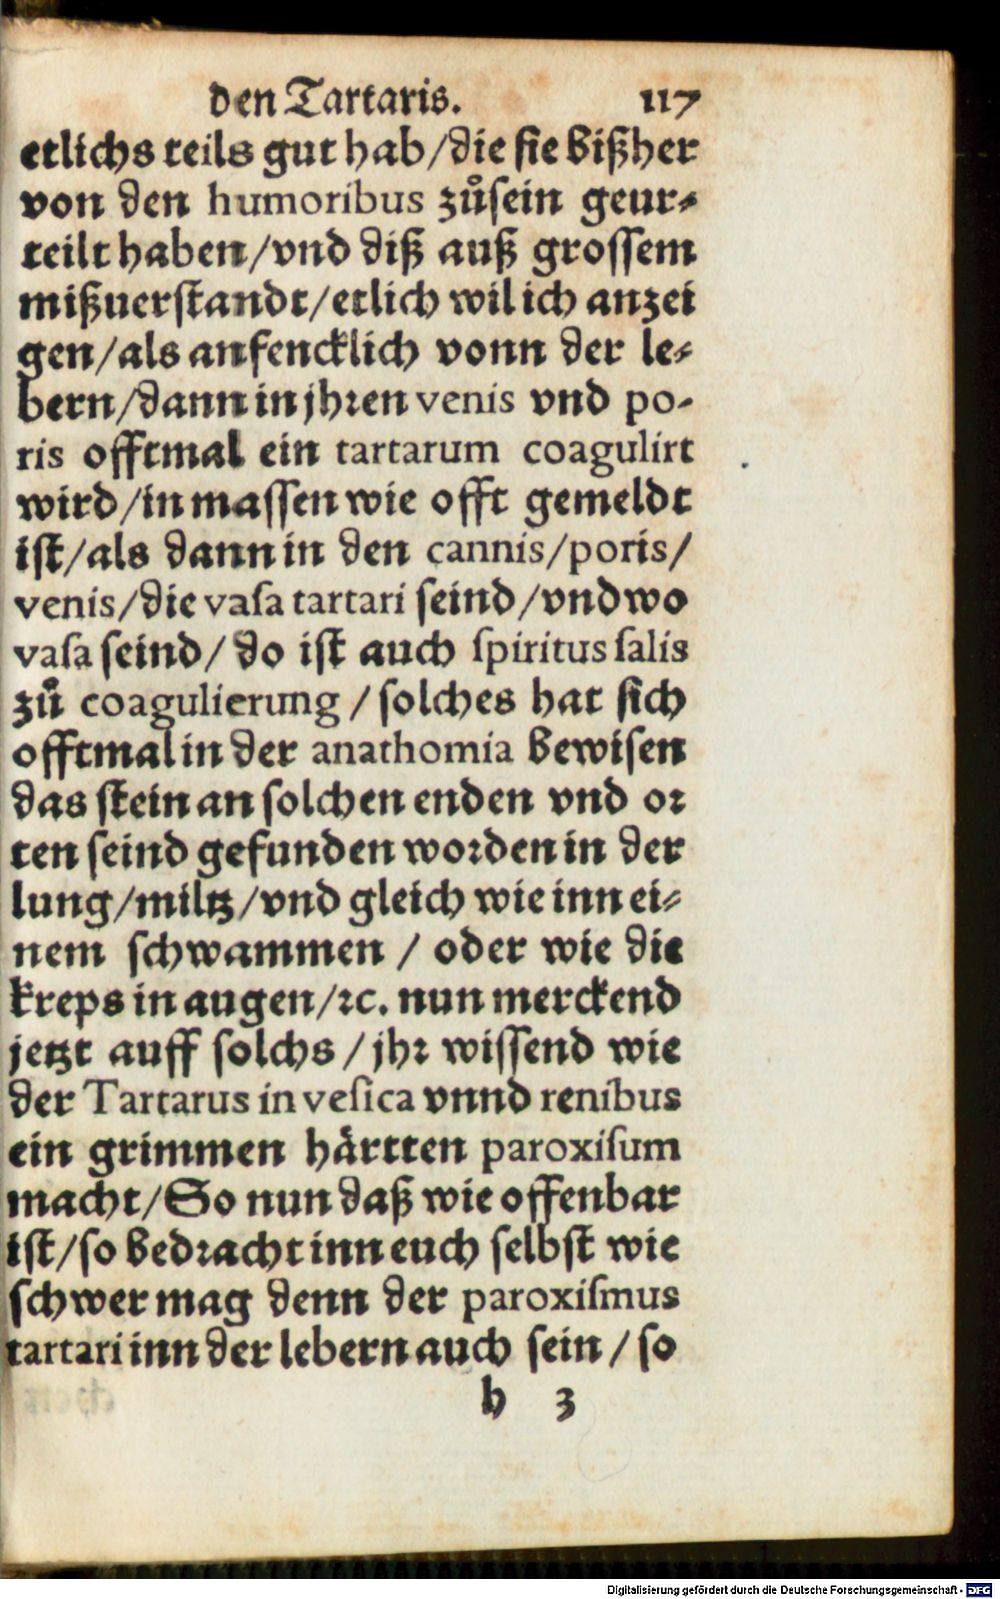 den Tartaris. 117
etlichs teils gut hab/die sie bißher
von den humoribus zůsein geur⸗
teilt haben/vnd diß auß grossem
mißuerstandt/etlich wil ich anzei
gen/als anfencklich vonn der le⸗
bern/dann in jhren venis vnd po-
ris offtmal ein tartarum coagulirt
wird/in massen wie offt gemeldt
ist/als dann in den cannis/poris/
venis/die vasa tartari seind/vnd wo
vasa seind/ do ist auch spiritus salis
zů coagulierung / solches hat sich
offtmal in der anathomia bewisen
das stein an solchen enden vnd or
ten seind gefunden worden in der
lung/miltz/vnd gleich wie inn ei⸗
nem schwammen / oder wie die
kreps in augen/ꝛc. nun merckend
jetzt auff solchs / jhr wissend wie
der Tartarus in vesica vnnd renibus
ein grimmen härtten paroxisum
macht/So nun daß wie offenbar
ist/so bedracht inn euch selbst wie
schwer mag denn der paroxismus
tartari inn der lebern auch sein / so
h 3
Digitalisierung gefördert durch die Deutsche Forschungsgemeinschaft - DFG